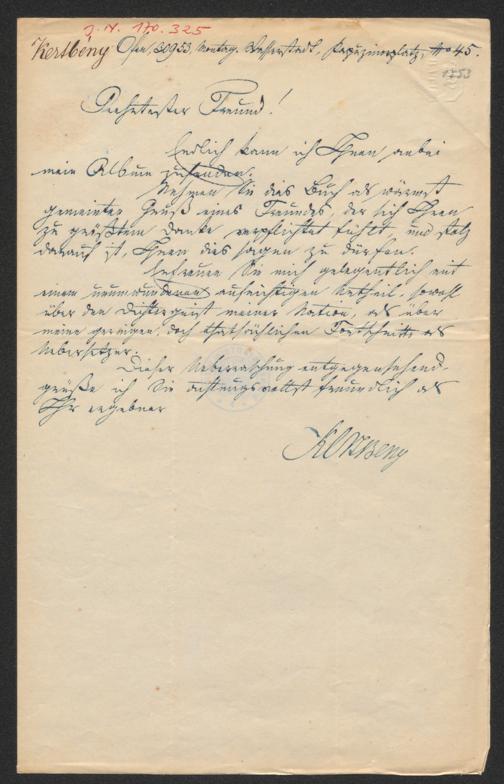 J. N. 170.325
Kertbény Ofen, 953 Montag. Wasserstadt, Kapuzinerplatz, No 45.
1853
Geehrtester Freund!
Endlich kann ich Ihnen anbei
mein Album zusenden.
Nehmen Sie dies Buch als wärmst
gemeinten Gruß eines Freundes, der sich Ihnen
zu größtem Danke verpflichtet fühlt, und stolz
darauf ist, Ihnen dies sagen zu dürfen.
Erfreuen Sie mich gelegentlich mit
einem unumwundenen aufrichtigen Urtheil, sowohl
über den Dichtergeist meiner Nation, als über
meine geringen, doch thatsächlichen Fortschritte als
Uebersetzer.
Dieser Ueberraschung entgegensehend
grüße ich Sie achtungsvollst freundlich als
Ihr ergebner
Kertbeny